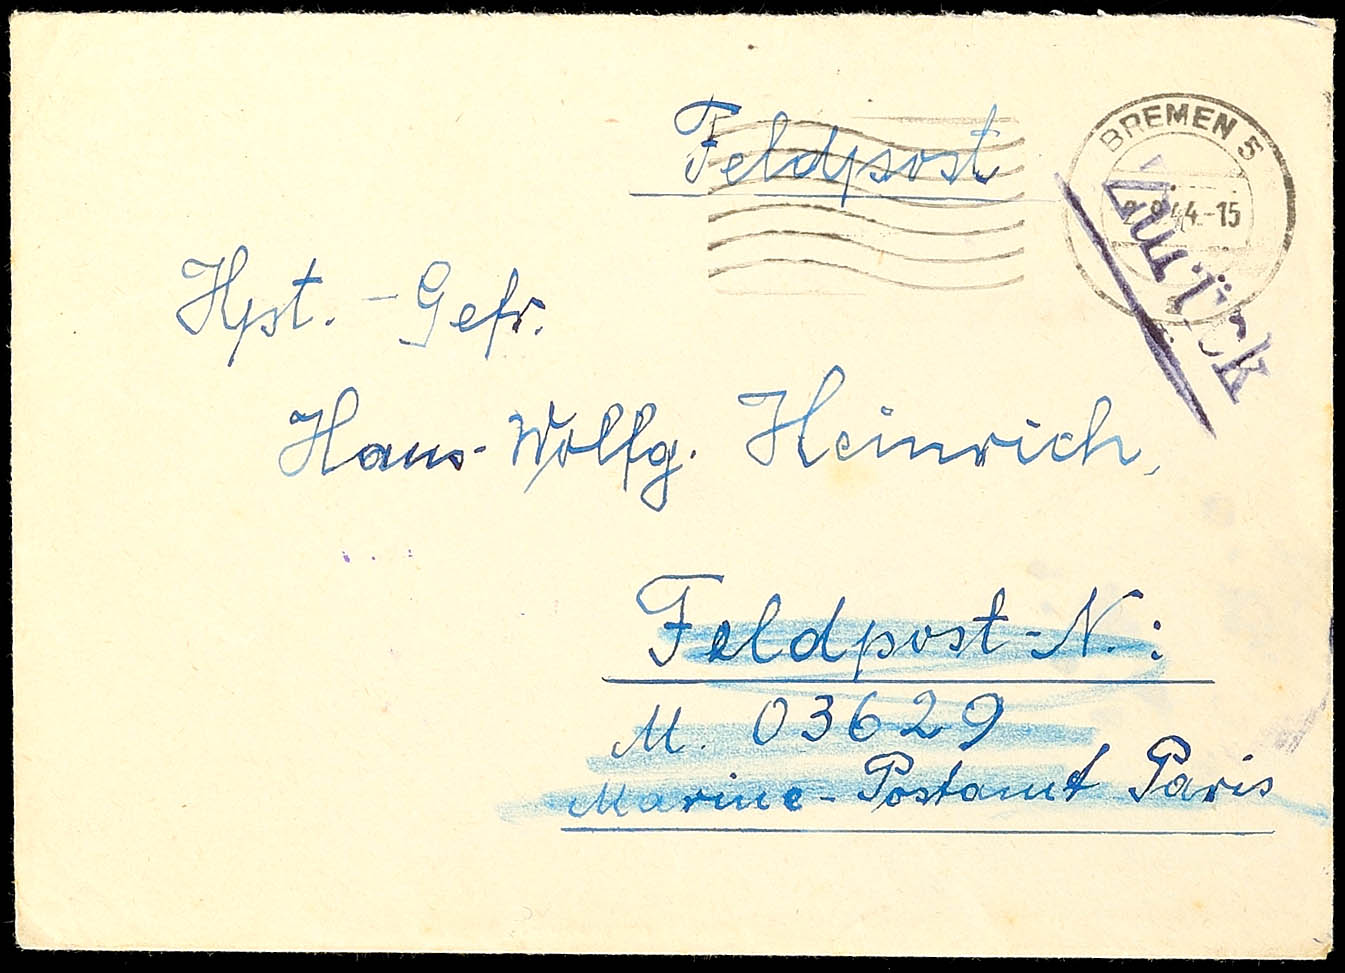 Feldpost
BREMEN 5
44.-15
Zurück
Hpt.-Gefr.
Hans-Wolfg. Heinrich,
Feldpost-N.:
M. 03629
Marine-Postamt Paris